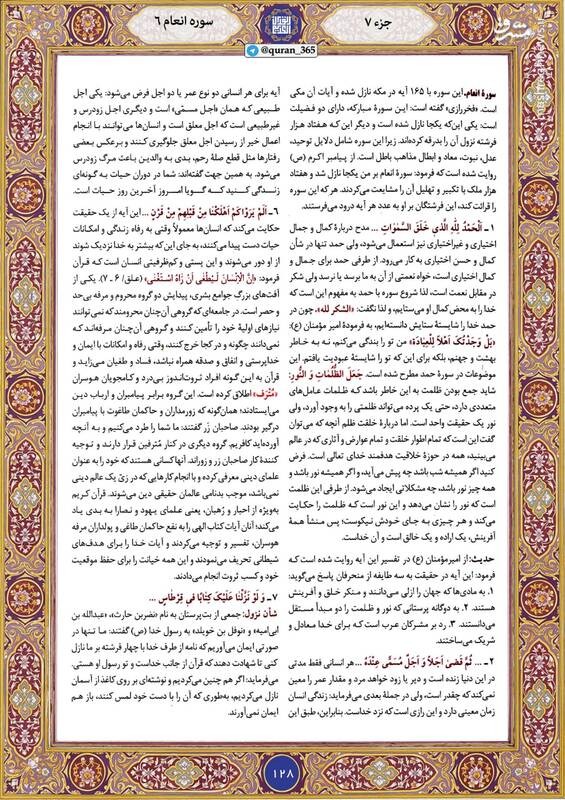 جزء ۷
سوره انعام ۶
@quran_365
سورهٔ انعام. این سوره با ۱۶۵ آیه در مکه نازل شده و آیات آن مکی
است. «فخررازی» گفته است: این سورهٔ مبارکه، دارای دو فضیلت
است: یکی این‌که یکجا نازل شده است و دیگر این که هفتاد هزار
فرشته نزول آن را بدرقه کرده‌اند. زیرا این سوره شامل دلایل توحید،
عدل، نبوت، معاد و ابطال مذاهب باطل است. از پیامبر اکرم (ص)
روایت شده است که فرمود: سورهٔ انعام بر من یکجا نازل شد و هفتاد
هزار ملک با تکبیر و تهلیل آن را مشایعت می‌کردند. هر که این سوره
را قرائت کند، این فرشتگان بر او به عدد هر آیه درود می‌فرستند.
۱ـ اَلْحَمْدُ لِلّٰهِ الَّذی خَلَقَ السَّمٰوٰاتِ ... مدح دربارهٔ کمال و جمال
اختیاری و غیراختیاری نیز استعمال می‌شود، ولی حمد تنها در شأن
کمال و حسن اختیاری به کار می‌رود. از طرفی حمد برای جمال و
کمال اختیاری است، خواه نعمتی از آن به ما برسد یا نرسد ولی شکر
در مقابل نعمت است، لذا شروع سوره با حمد به مفهوم این است که
خدا را به محض کمال او می‌ستاییم، و لذا نگفت: «الشکر لله»، چون در
حمد خدا را شایستهٔ ستایش دانسته‌ایم، به فرمودهٔ امیر مؤمنان (ع):
«بَلْ وَجَدْتُکَ اَهْلاً لِلْعِبادَةِ» من تو را بندگی می‌کنم، نه به خاطر
بهشت و جهنم، بلکه برای این که تو را شایستهٔ عبودیت یافتم. این
موضوعات در سورهٔ حمد مطرح شده است. جَعَلَ الظُّلُمٰاتِ وَ النُّورَ:
شاید جمع بودن ظلمت به این خاطر باشد که ظلمات عامل‌های
متعددی دارد، حتی یک پرده می‌تواند ظلمتی را به وجود آورد، ولی
نور یک حقیقت واحد است. اما دربارهٔ خلقت ظلم آنچه که می‌توان
گفت این است که تمام اطوار خلقت و تمام عوارض و آثاری که در عالم
می‌بینید، همه در حوزهٔ خلاقیت هدفمند خدای تعالی است. فرض
کنید اگر همیشه شب باشد چه پیش می‌آید، و اگر همیشه نور باشد و
همه چیز نور باشد، چه مشکلاتی ایجاد می‌شود. از طرفی این ظلمت
است که نور را نشان می‌دهد و این نور است که ظلمت را حکایت
می‌کند و هر چیزی به جای خودش نیکوست؛ پس منشأ همهٔ
آفرینش، یک اراده و یک خالق است و آن خداست.
حدیث: از امیرمؤمنان (ع) در تفسیر این آیه روایت شده است که
فرمود: این آیه در حقیقت به سه طایفه از منحرفان پاسخ می‌گوید:
۱. به مادی‌ها که جهان را ازلی می‌دانند و منکر خلق و آفرینش
هستند. ۲. به دوگانه پرستانی که نور و ظلمت را دو مبدأ مستقل
می‌دانستند. ۳. رد بر مشرکان عرب است که برای خدا معادل و
شریک می‌ساختند.
۲ـ ... ثُمَّ قَضیٰ اَجَلاً وَ اَجَلٌ مُسَمًّی عِنْدَهُ ... هر انسانی فقط مدتی
در این دنیا زنده است و دیر یا زود خواهد مرد و مقدار عمر را معین
نمی‌کند که چقدر است، ولی در جملهٔ بعدی می‌فرماید: زندگی انسان
زمان معینی دارد و این رازی است که نزد خداست. بنابراین، طبق این
آیه برای هر انسانی دو نوع عمر یا دو اجل فرض می‌شود: یکی اجل
طبیعی که همان «اجل مسمّیٰ» است و دیگری اجل زودرس و
غیرطبیعی است که اجل معلق است و انسان‌ها می‌توانند با انجام
اعمال خیر از رسیدن اجل معلق جلوگیری کنند و برعکس بعضی
رفتارها مثل قطع صلهٔ رحم، بدی به والدین باعث مرگ زودرس
می‌شود. به همین جهت گفته‌اند: شما در دوران حیات به گونه‌ای
زندگی کنید که گویا امروز آخرین روز حیات است.
۶ـ اَلَمْ یَرَوْا کَمْ اَهْلَکْنٰا مِنْ قَبْلِهِمْ مِنْ قَرْنٍ ... این آیه از یک حقیقت
حکایت می‌کند که انسان‌ها معمولاً وقتی به رفاه زندگی و امکانات
حیات دست پیدا می‌کنند، به جای این که بیشتر به خدا نزدیک شوند
از او دور می‌شوند و این پستی و کم‌ظرفیتی انسان است که قرآن
فرمود: «اِنَّ الْاِنْسٰانَ لَیَطْغٰی اَنْ رَاٰهُ اسْتَغْنٰی» (علق/ ۶ ـ ۷). یکی از
آفت‌های بزرگ جوامع بشری، پیدایش دو گروه محروم و مرفه بی‌حد
و حصر است. در جامعه‌ای که گروهی آن‌چنان محرومند که نمی‌توانند
نیازهای اولیهٔ خود را تأمین کنند و گروهی آن‌چنان مرفه‌اند که
نمی‌دانند چگونه و در کجا خرج کنند، وقتی رفاه و امکانات با ایمان و
خداپرستی و انفاق و صدقه همراه نباشد، فساد و طغیان می‌زاید و
قرآن به این گونه افراد ثروت‌اندوز بی‌درد و کامجویان هوسران
«مُتْرَف» اطلاق کرده است. این گروه برابر پیامبران و ارباب دین
می‌ایستادند؛ همان‌گونه که زورمداران و حاکمان طاغوت با پیامبران
درگیر بودند. صاحبان زَر گفتند: ما شما را طرد می‌کنیم و به آنچه
آورده‌اید کافریم. گروه دیگری در کنار مُترفین قرار دارند و توجیه
کنندهٔ کار صاحبان زر و زوراند. آنها کسانی هستند که خود را به عنوان
علمای دینی معرفی کرده و با انجام کارهایی که در زیّ یک عالم دینی
نمی‌باشد، موجب بدنامی عالمان حقیقی دین می‌شوند. قرآن کریم
به‌ویژه از احبار و رُهبان، یعنی علمای یهود و نصارا به بدی یاد
می‌کند؛ آنان آیات کتاب الهی را به نفع حاکمان طاغی و پولداران مرفه
هوسران، تفسیر و توجیه می‌کردند و آیات خدا را برای هدف‌های
شیطانی تحریف می‌نمودند و این همه خیانت را برای حفظ موقعیت
خود و کسب ثروت انجام می‌دادند.
۷ـ وَ لَوْ نَزَّلْنٰا عَلَیْکَ کِتٰابًا فی قِرْطٰاسٍ ...
شأن نزول: جمعی از بت‌پرستان به نام «نضربن حارث»، «عبدالله بن
ابی‌امیه» و «نوفل بن خویلد» به رسول خدا (ص) گفتند: ما تنها در
صورتی ایمان می‌آوریم که نامه از طرف خدا با چهار فرشته بر ما نازل
کنی تا شهادت دهند که قرآن از جانب خداست و تو رسول او هستی.
می‌فرماید: اگر هم چنین می‌کردیم و نوشته‌ای بر روی کاغذ از آسمان
نازل می‌کردیم، به‌طوری که آن را با دست خود لمس کنند، باز هم
ایمان نمی‌آورند.
۱۲۸